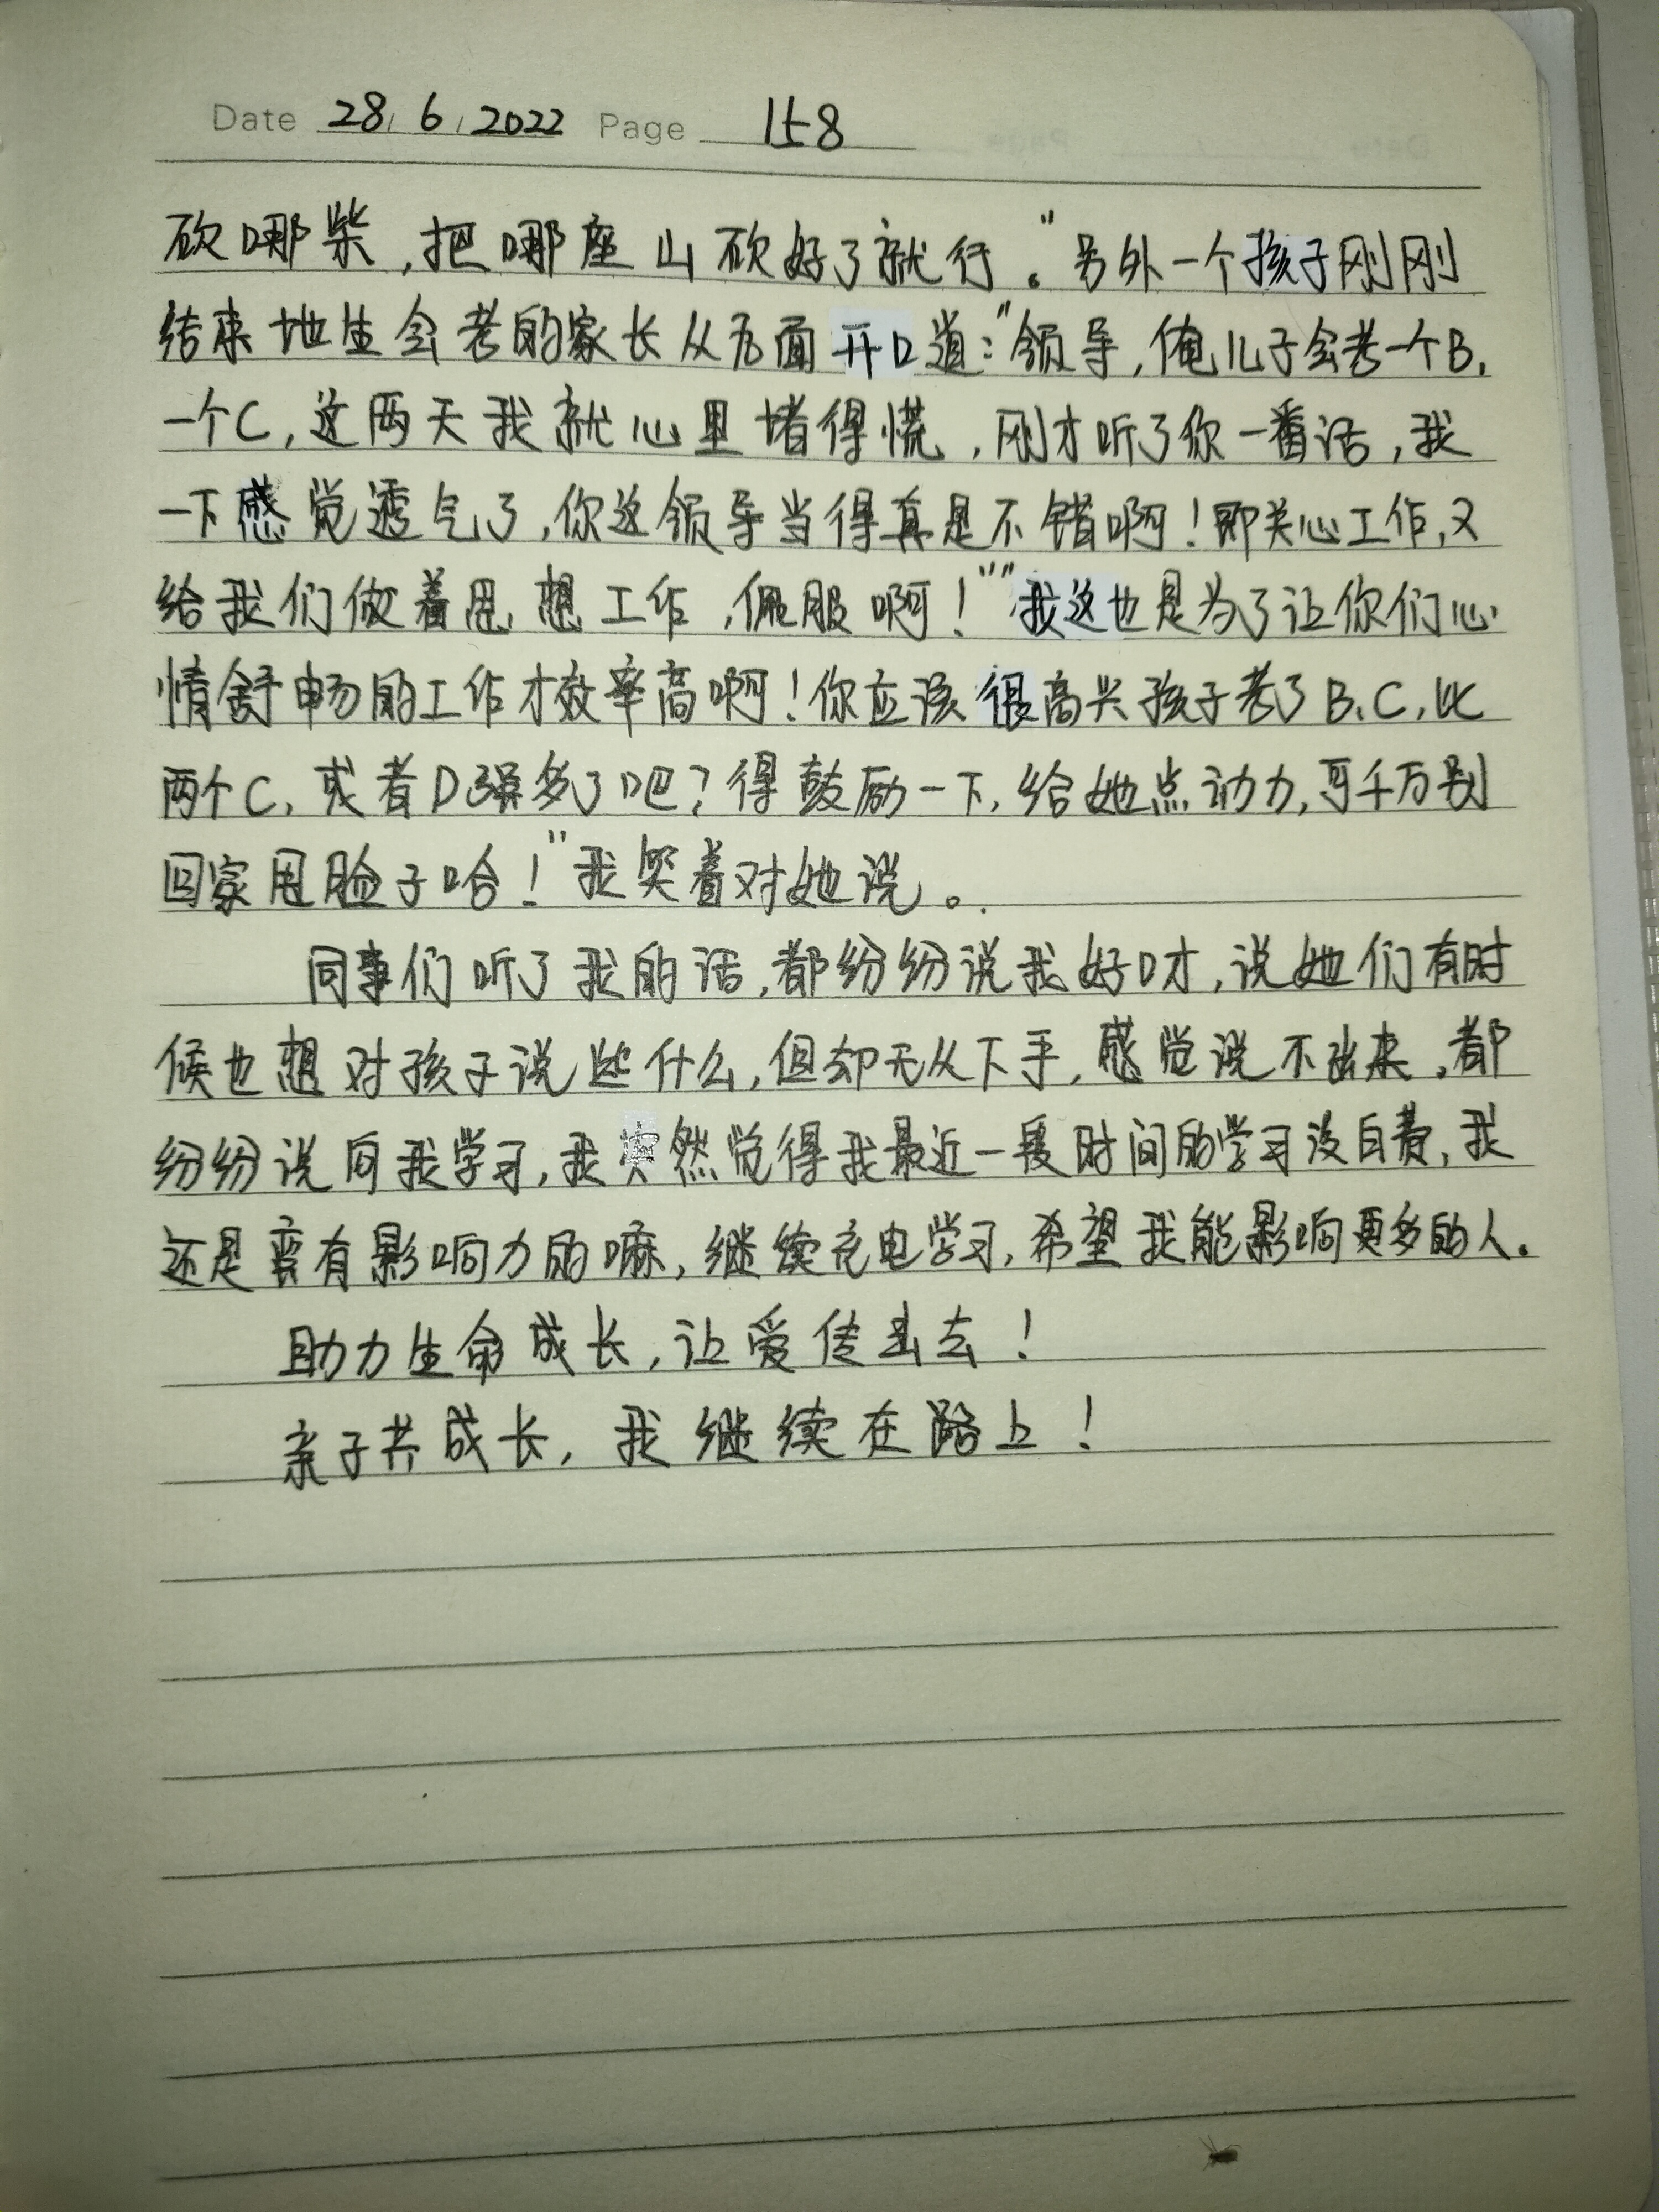 Date 28 / 6 / 2022 Page 158
砍哪柴，把哪座山砍好了就行。”另外一个孩子刚刚
结束地生会考的家长从后面开口道：“领导，俺儿子会考一个B，
一个C，这两天我就心里堵得慌，刚才听了你一番话，我
一下感觉透气了，你这领导当得真是不错啊！即关心工作，又
给我们做着思想工作，佩服啊！”“我这也是为了让你们心
情舒畅的工作才效率高啊！你应该很高兴孩子考了B、C，比
两个C，或者D强多了吧？得鼓励一下，给她点动力，可千万别
回家甩脸子哈！”我笑着对她说。
同事们听了我的话，都纷纷说我好口才，说她们有时
候也想对孩子说些什么，但却无从下手，感觉说不出来，都
纷纷说向我学习，我突然觉得我最近一段时间的学习没白费，我
还是蛮有影响力的嘛，继续充电学习，希望我能影响更多的人。
助力生命成长，让爱传出去！
亲子共成长，我继续在路上！